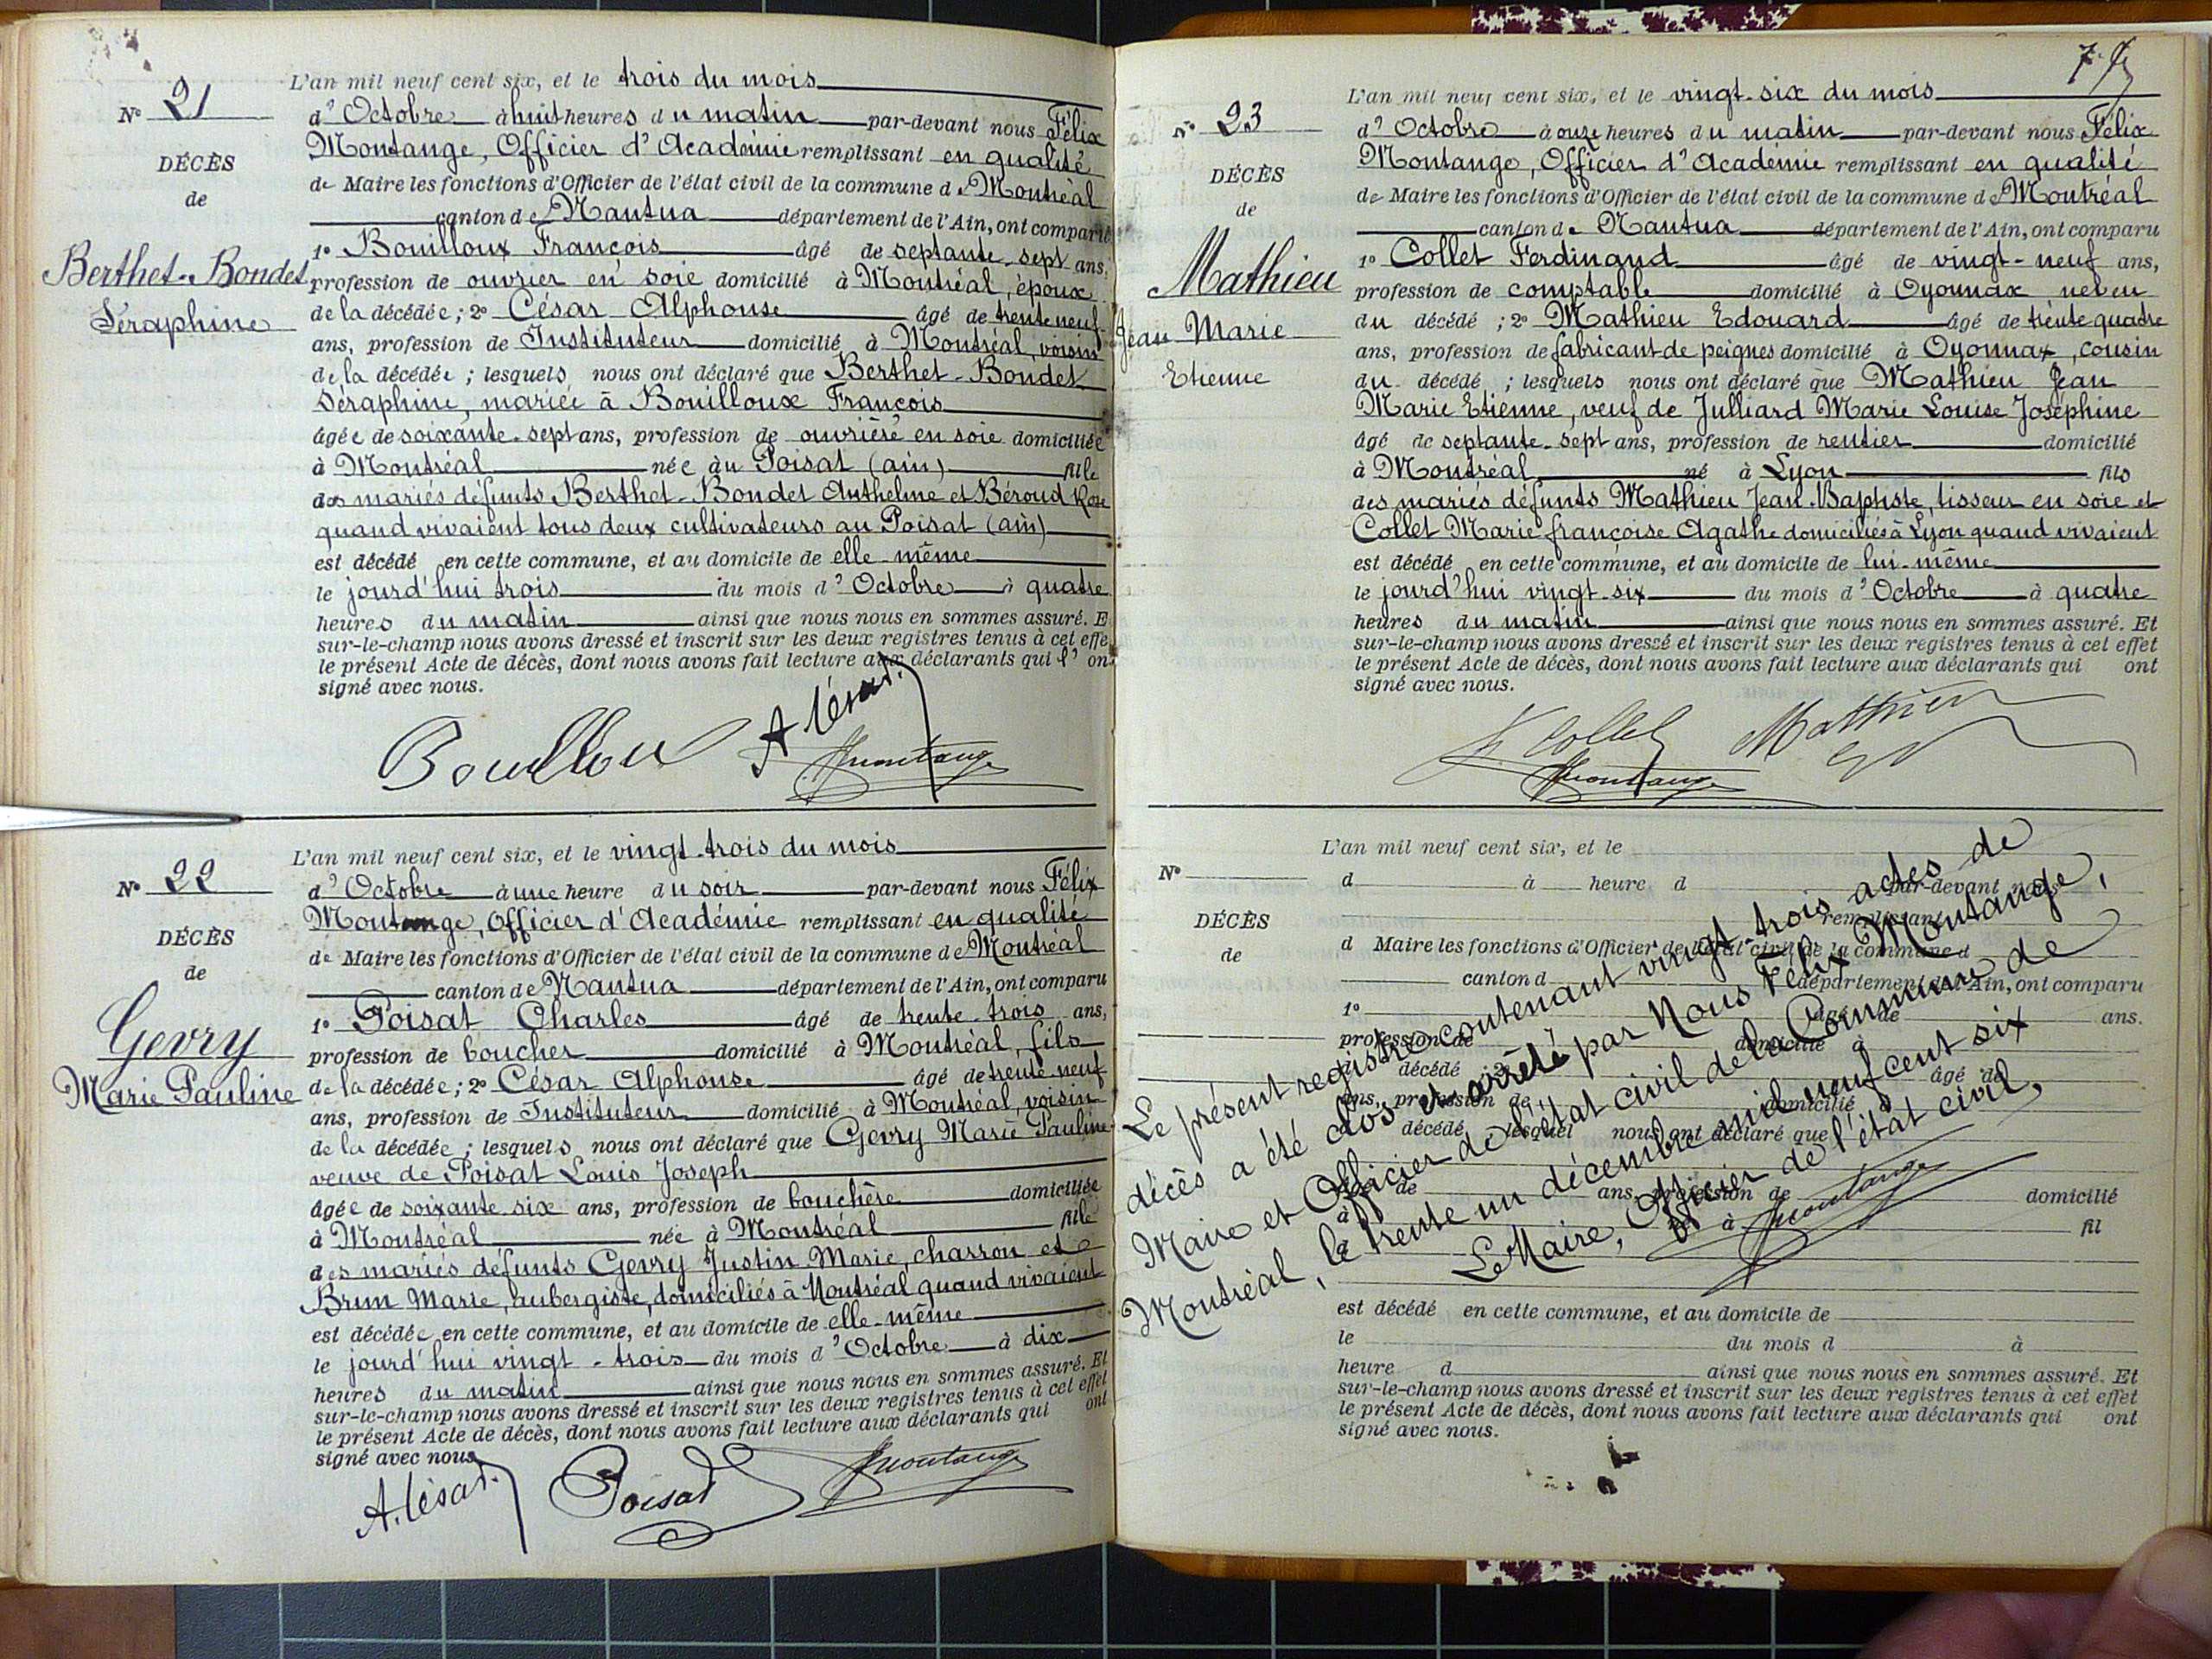 L'an mil neuf cent six, et le trois du mois
N° 21
d'Octobre à huit heures du matin par-devant nous Félix
Montange, Officier d'Académie remplissant en qualité
DÉCÈS
de Maire les fonctions d'Officier de l'état civil de la commune de Montréal
de
canton de Nantua département de l'Ain, ont comparu
1° Bouilloux François âgé de septante-sept ans,
Berthet-Bondet
profession de ouvrier en soie domicilié à Montréal, époux
Séraphine
de la décédée; 2° César Alphonse âgé de trente neuf
ans, profession de Instituteur domicilié à Montréal, voisin
de la décédée; lesquels nous ont déclaré que Berthet-Bondet
Séraphine, mariée à Bouilloux François
âgée de soixante-sept ans, profession de ouvrière en soie domiciliée
à Montréal née au Poisat (ain) fille
des mariés défunts Berthet-Bondet Anthelme et Béroud Rose
quand vivaient tous deux cultivateurs au Poisat (ain)
est décédé en cette commune, et au domicile de elle-même
le jourd'hui trois du mois d'Octobre à quatre
heures du matin ainsi que nous nous en sommes assuré. E
sur-le-champ nous avons dressé et inscrit sur les deux registres tenus à cet effe
le présent Acte de décès, dont nous avons fait lecture aux déclarants qui l'ont
signé avec nous.
Bouilloux A César. Fmontange
L'an mil neuf cent six, et le vingt-trois du mois
N° 22
d'Octobre à une heure du soir par-devant nous Félix
Montange, Officier d'Académie remplissant en qualité
DÉCÈS
de Maire les fonctions d'Officier de l'état civil de la commune de Montréal
de
canton de Nantua département de l'Ain, ont comparu
1° Poisat Charles âgé de trente-trois ans,
Gevry
profession de boucher domicilié à Montréal, fils
Marie Pauline
de la décédée; 2° César Alphonse âgé de trente-neuf
ans, profession de Instituteur domicilié à Montréal, voisin
de la décédée; lesquels nous ont déclaré que Gevry Marie Pauline
veuve de Poisat Louis Joseph
âgée de soixante-six ans, profession de bouchère domiciliée
à Montréal née à Montréal fille
des mariés défunts Gevry Justin Marie, charron et
Brun Marie, aubergiste, domiciliés à Montréal quand vivaient
est décédée en cette commune, et au domicile de elle-même
le jourd'hui vingt-trois du mois d'Octobre à dix
heures du matin ainsi que nous nous en sommes assuré. Et
sur-le-champ nous avons dressé et inscrit sur les deux registres tenus à cet effet
le présent Acte de décès, dont nous avons fait lecture aux déclarants qui ont
signé avec nous.
A. César. Poisat Fmontange
L'an mil neuf cent six, et le vingt-six du mois
N° 23
d'Octobre à onze heures du matin par-devant nous Félix
Montange, Officier d'Académie remplissant en qualité
DÉCÈS
de Maire les fonctions d'Officier de l'état civil de la commune de Montréal
de
canton de Nantua département de l'Ain, ont comparu
1° Collet Ferdinand âgé de vingt-neuf ans,
Mathieu
profession de comptable domicilié à Oyonnax neveu
Jean Marie
du décédé; 2° Mathieu Edouard âgé de trente quatre
ans, profession de fabricant de peignes domicilié à Oyonnax, cousin
Etienne
du décédé; lesquels nous ont déclaré que Mathieu Jean
Marie Etienne, veuf de Julliard Marie Louise Joséphine
âgé de septante-sept ans, profession de rentier domicilié
à Montréal né à Lyon fils
des mariés défunts Mathieu Jean-Baptiste, tisseur en soie et
Collet Marie françoise Agathe domiciliés à Lyon quand vivaient
est décédé en cette commune, et au domicile de lui-même
le jourd'hui vingt-six du mois d'Octobre à quatre
heures du matin ainsi que nous nous en sommes assuré. Et
sur-le-champ nous avons dressé et inscrit sur les deux registres tenus à cet effet
le présent Acte de décès, dont nous avons fait lecture aux déclarants qui ont
signé avec nous.
F. Collet Mathieu
Fmontange
L'an mil neuf cent six, et le
N°
d à heure d par-devant nous
remplissant
DÉCÈS
d Maire les fonctions d'Officier de l'état civil de la commune d
de
canton d département de l'Ain, ont comparu
1° âgé de ans.
profession de domicilié à
décédé ; 2° âgé de
ans, profession de domicilié
décédé ; lesquel nous ont déclaré que
âgé de ans, profession de domicilié
à né à fil
d
Le présent registre contenant vingt-trois actes de
décès a été clos et arrêté par Nous Félix Montange,
Maire et Officier de l'état civil de la Commune de
Montréal, le trente un décembre mil neuf cent six
Le Maire, Officier de l'état civil,
Fmontange
est décédé en cette commune, et au domicile de
le du mois d à
heure d ainsi que nous nous en sommes assuré. Et
sur-le-champ nous avons dressé et inscrit sur les deux registres tenus à cet effet
le présent Acte de décès, dont nous avons fait lecture aux déclarants qui ont
signé avec nous.